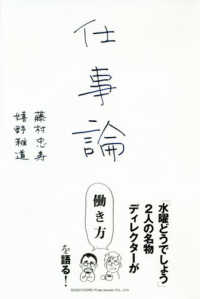 仕事論
藤村忠寿
嬉野雅道
「水曜どうでしょう」
2人の名物
ディレクターが
働き方
を語る!